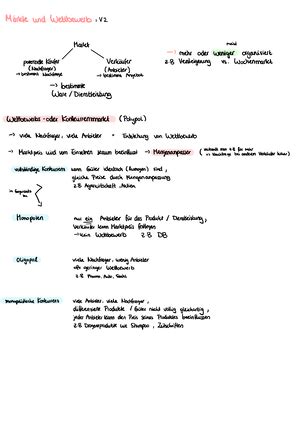 Märkte und Wettbewerb, V2
Markt
potentielle Käufer
(Nachfrager)
→ bestimmt Nachfrage
Verkäufer
(Anbieter)
→ bestimmte Angebot
→ bestimmte
Ware / Dienstleistung
→ mehr oder weniger organisiert
z.B Versteigerung vs. Wochenmarkt
Wettbewerbs- oder Konkurrenzmarkt (Polypol)
→ viele Nachfrager, viele Anbieter = Entstehung von Wettbewerb
→ Marktpreis wird von Einzelnen kaum beeinflusst → Mengenanpasser
vollständige Konkurrenz
wenn Güter identisch (homogen) sind,
gleiche Preise durch Mengenanpassung
z.B Agrarwirtschaft, Aktien
Monopolen
nur ein Anbieter für das Produkt / Dienstleistung,
Verkäufer kann Marktpreis festlegen
→ kein Wettbewerb z.B DB
Oligopol
viele Nachfrager, wenig Anbieter
oft geringer Wettbewerb
z.B Pharma, Auto,
monopolistische Konkurrenz
viele Anbieter, viele Nachfrager,
differenzierte Produkte / Güter nicht völlig gleichartig,
jeder Anbieter kann den Preis seines Produktes beeinflussen
z.B Drogerieprodukte wie Shampoo, Zeitschriften